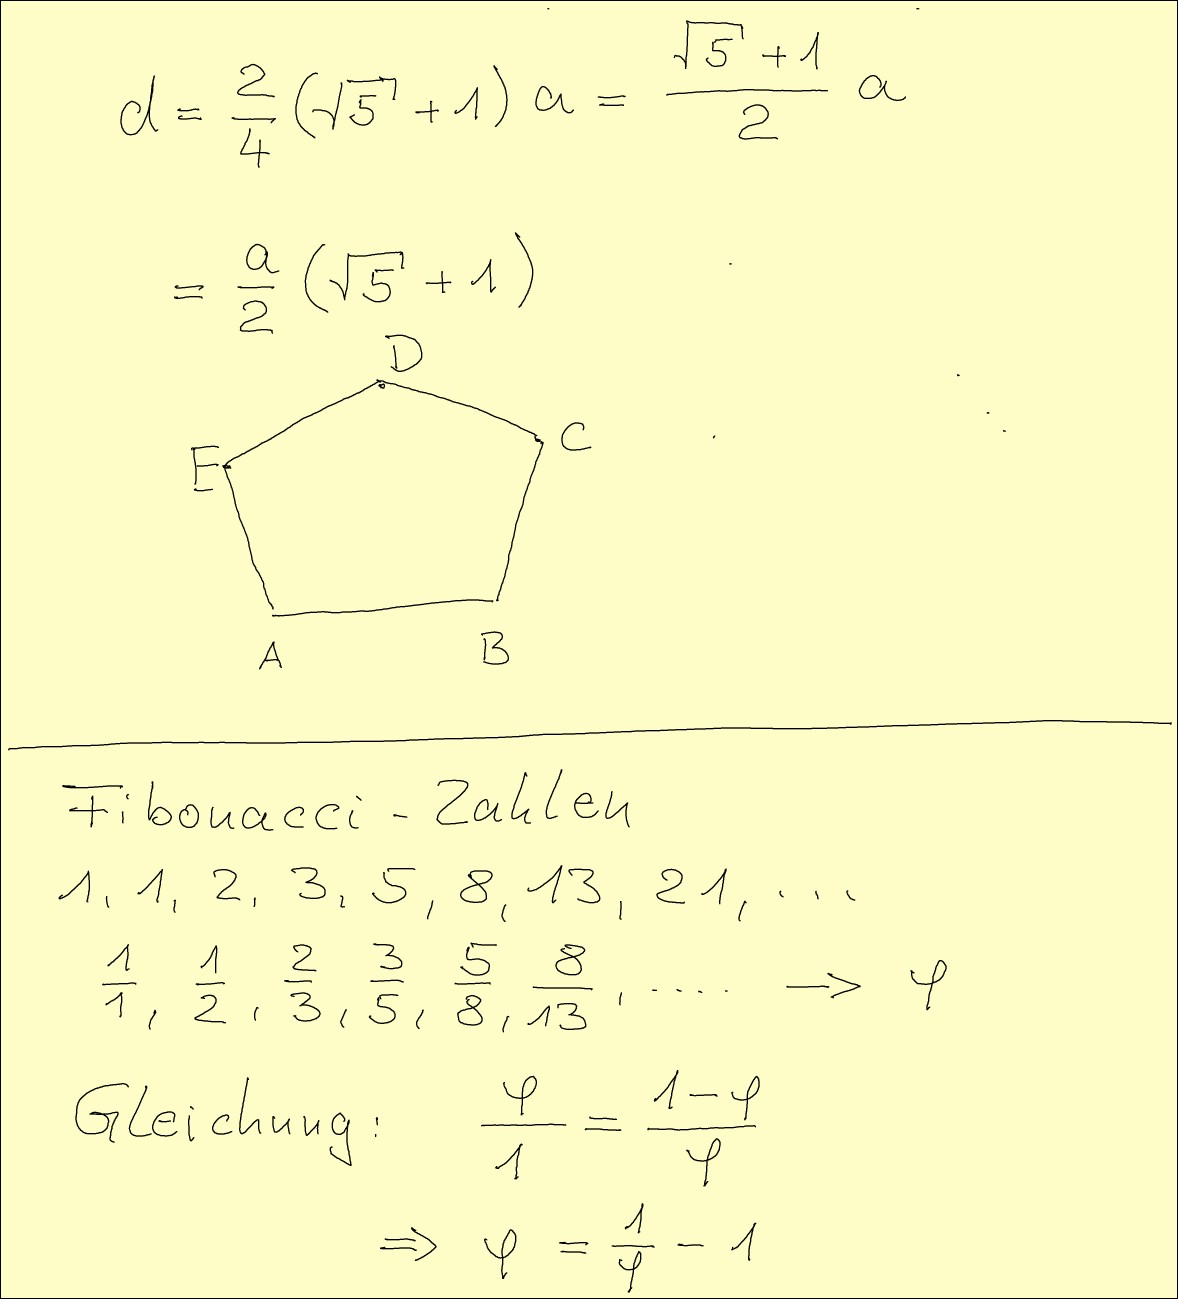 d = 2/4 (√5 + 1) a = (√5 + 1)/2 a
= a/2 (√5 + 1)
D
C
E
A B
Fibonacci - Zahlen
1, 1, 2, 3, 5, 8, 13, 21, ...
1/1, 1/2, 2/3, 3/5, 5/8, 8/13, .... → φ
Gleichung: φ/1 = (1-φ)/φ
⇒ φ = 1/φ - 1